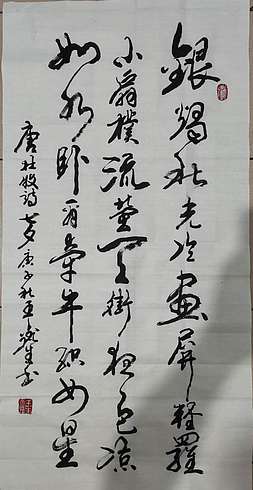 銀燭秋光冷畫屏輕羅
小扇撲流螢天街夜色涼
如水臥看牽牛織女星
唐杜牧詩 庚子秋王生書